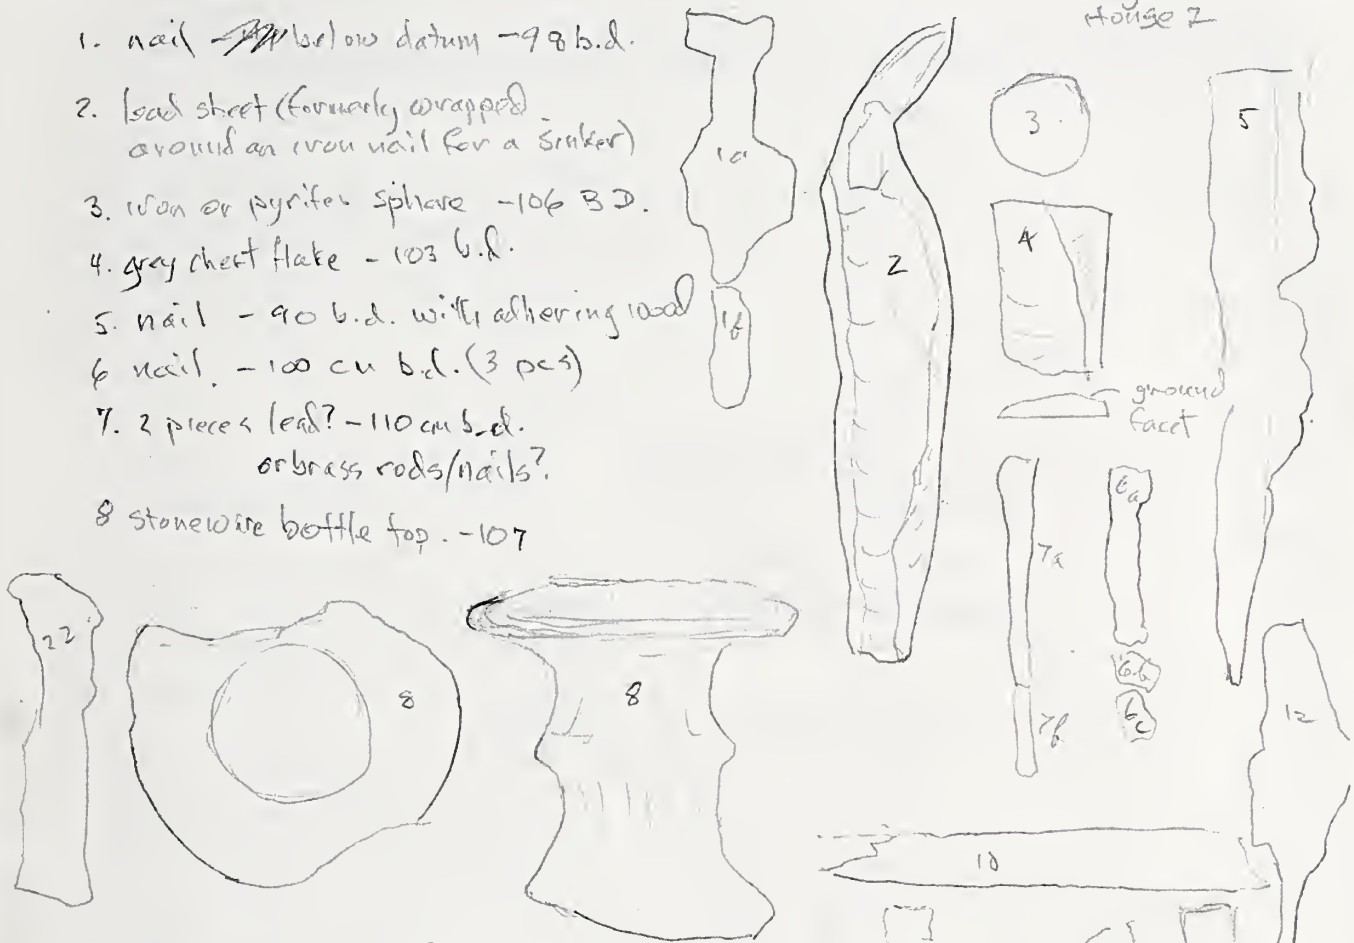 House 2
1. nail below datum -98 b.d.
2. lead sheet (formerly wrapped
around an iron nail for a sinker)
3. iron or pyrites sphere -106 B D.
4. grey chert flake - 103 b.d.
5. nail - 90 b.d. with adhering wood
6 nail. - 100 cm b.d. (3 pcs)
7. 2 pieces lead? -110 cm b.d.
or brass rods/nails?
8 stoneware bottle top. -107
1a
1b
2
3
4
ground
facet
5
6a
6b
6c
7a
7b
22
8
8
10
12